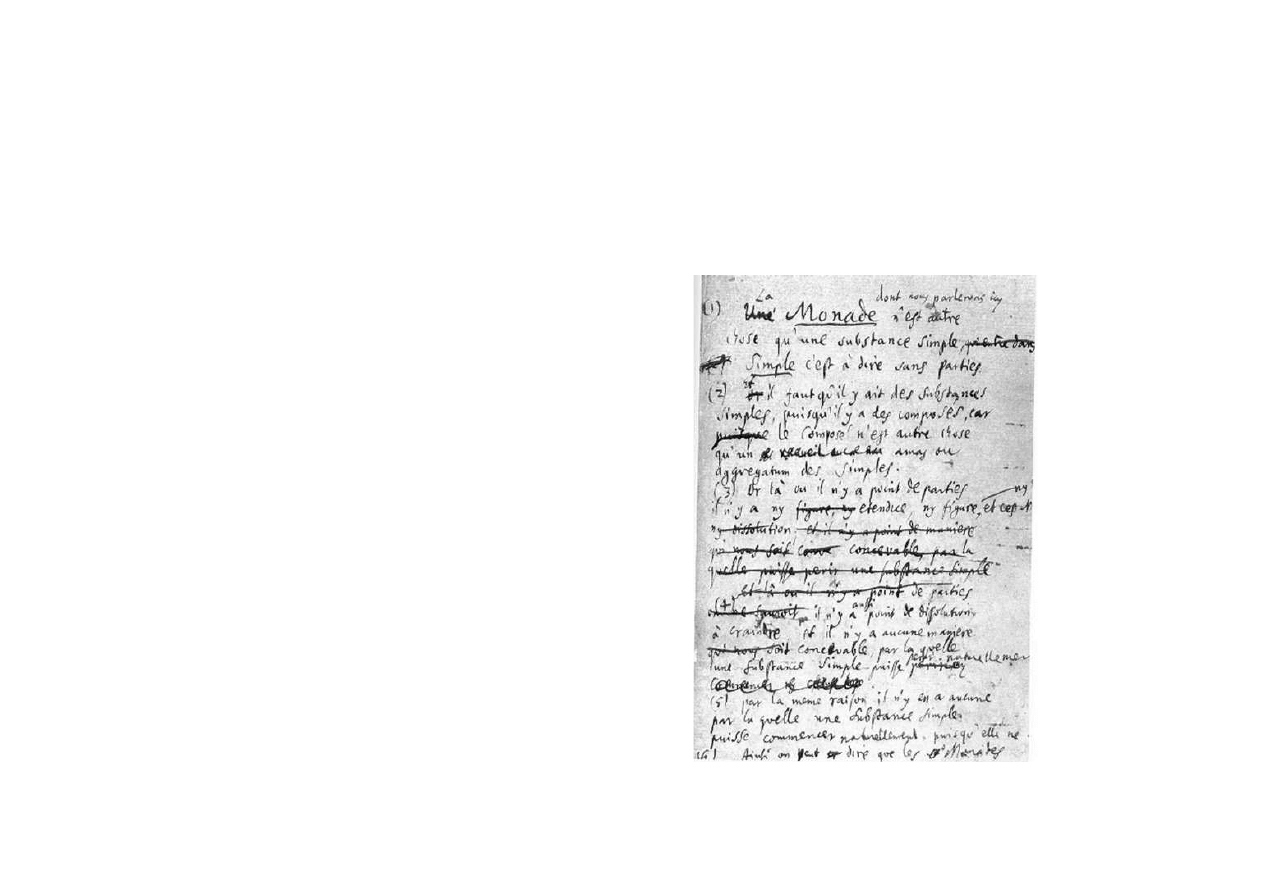 La dont nous parlerons icy
(1) Une Monade n'est autre
chose qu'une substance simple, qui entre dans
Simple c'est à dire sans parties
(2) et il faut qu'il y ait des substances
simples, puisqu'il y a des composés, car
puisque le Composé n'est autre chose
qu'un amas ou
aggregatum des simples.
(3) Or là ou il n'y a point de parties
ny
il n'y a ny figure, ny etendue, ny figure,
ny dissolution et il n'y a point de maniere
qui nous soit concevable, par la
quelle puisse perir une substance simple
et là ou il n'y a point de parties
aussi
(4) il n'y a point de dissolution
à craindre et il n'y a aucune maniere
qui nous soit concevable par la quelle
une substance simple puisse perir naturellement
(5) par la meme raison il n'y en a aucune
par la quelle une substance simple
puisse commencer naturellement, puisqu'elle ne
(6) Ainsi on peut dire que les Monades